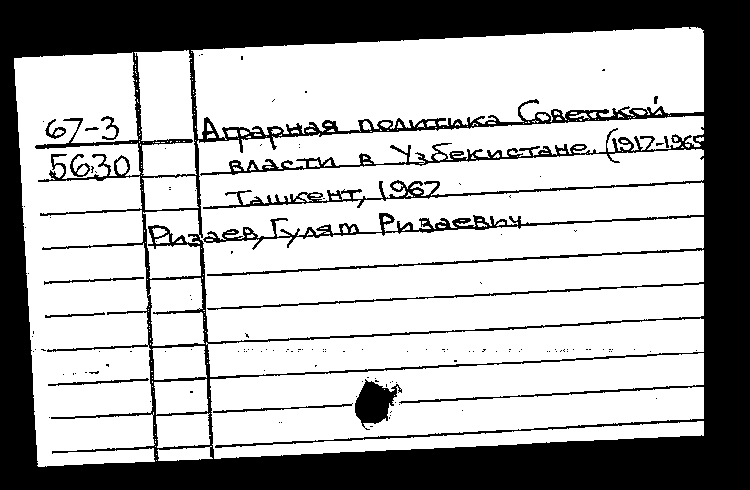 67-3 Аграрная политика Советской
5630 власти в Узбекистане. (1917-1965)
Ташкент, 1967
Ризаев, Гулям Ризаевич